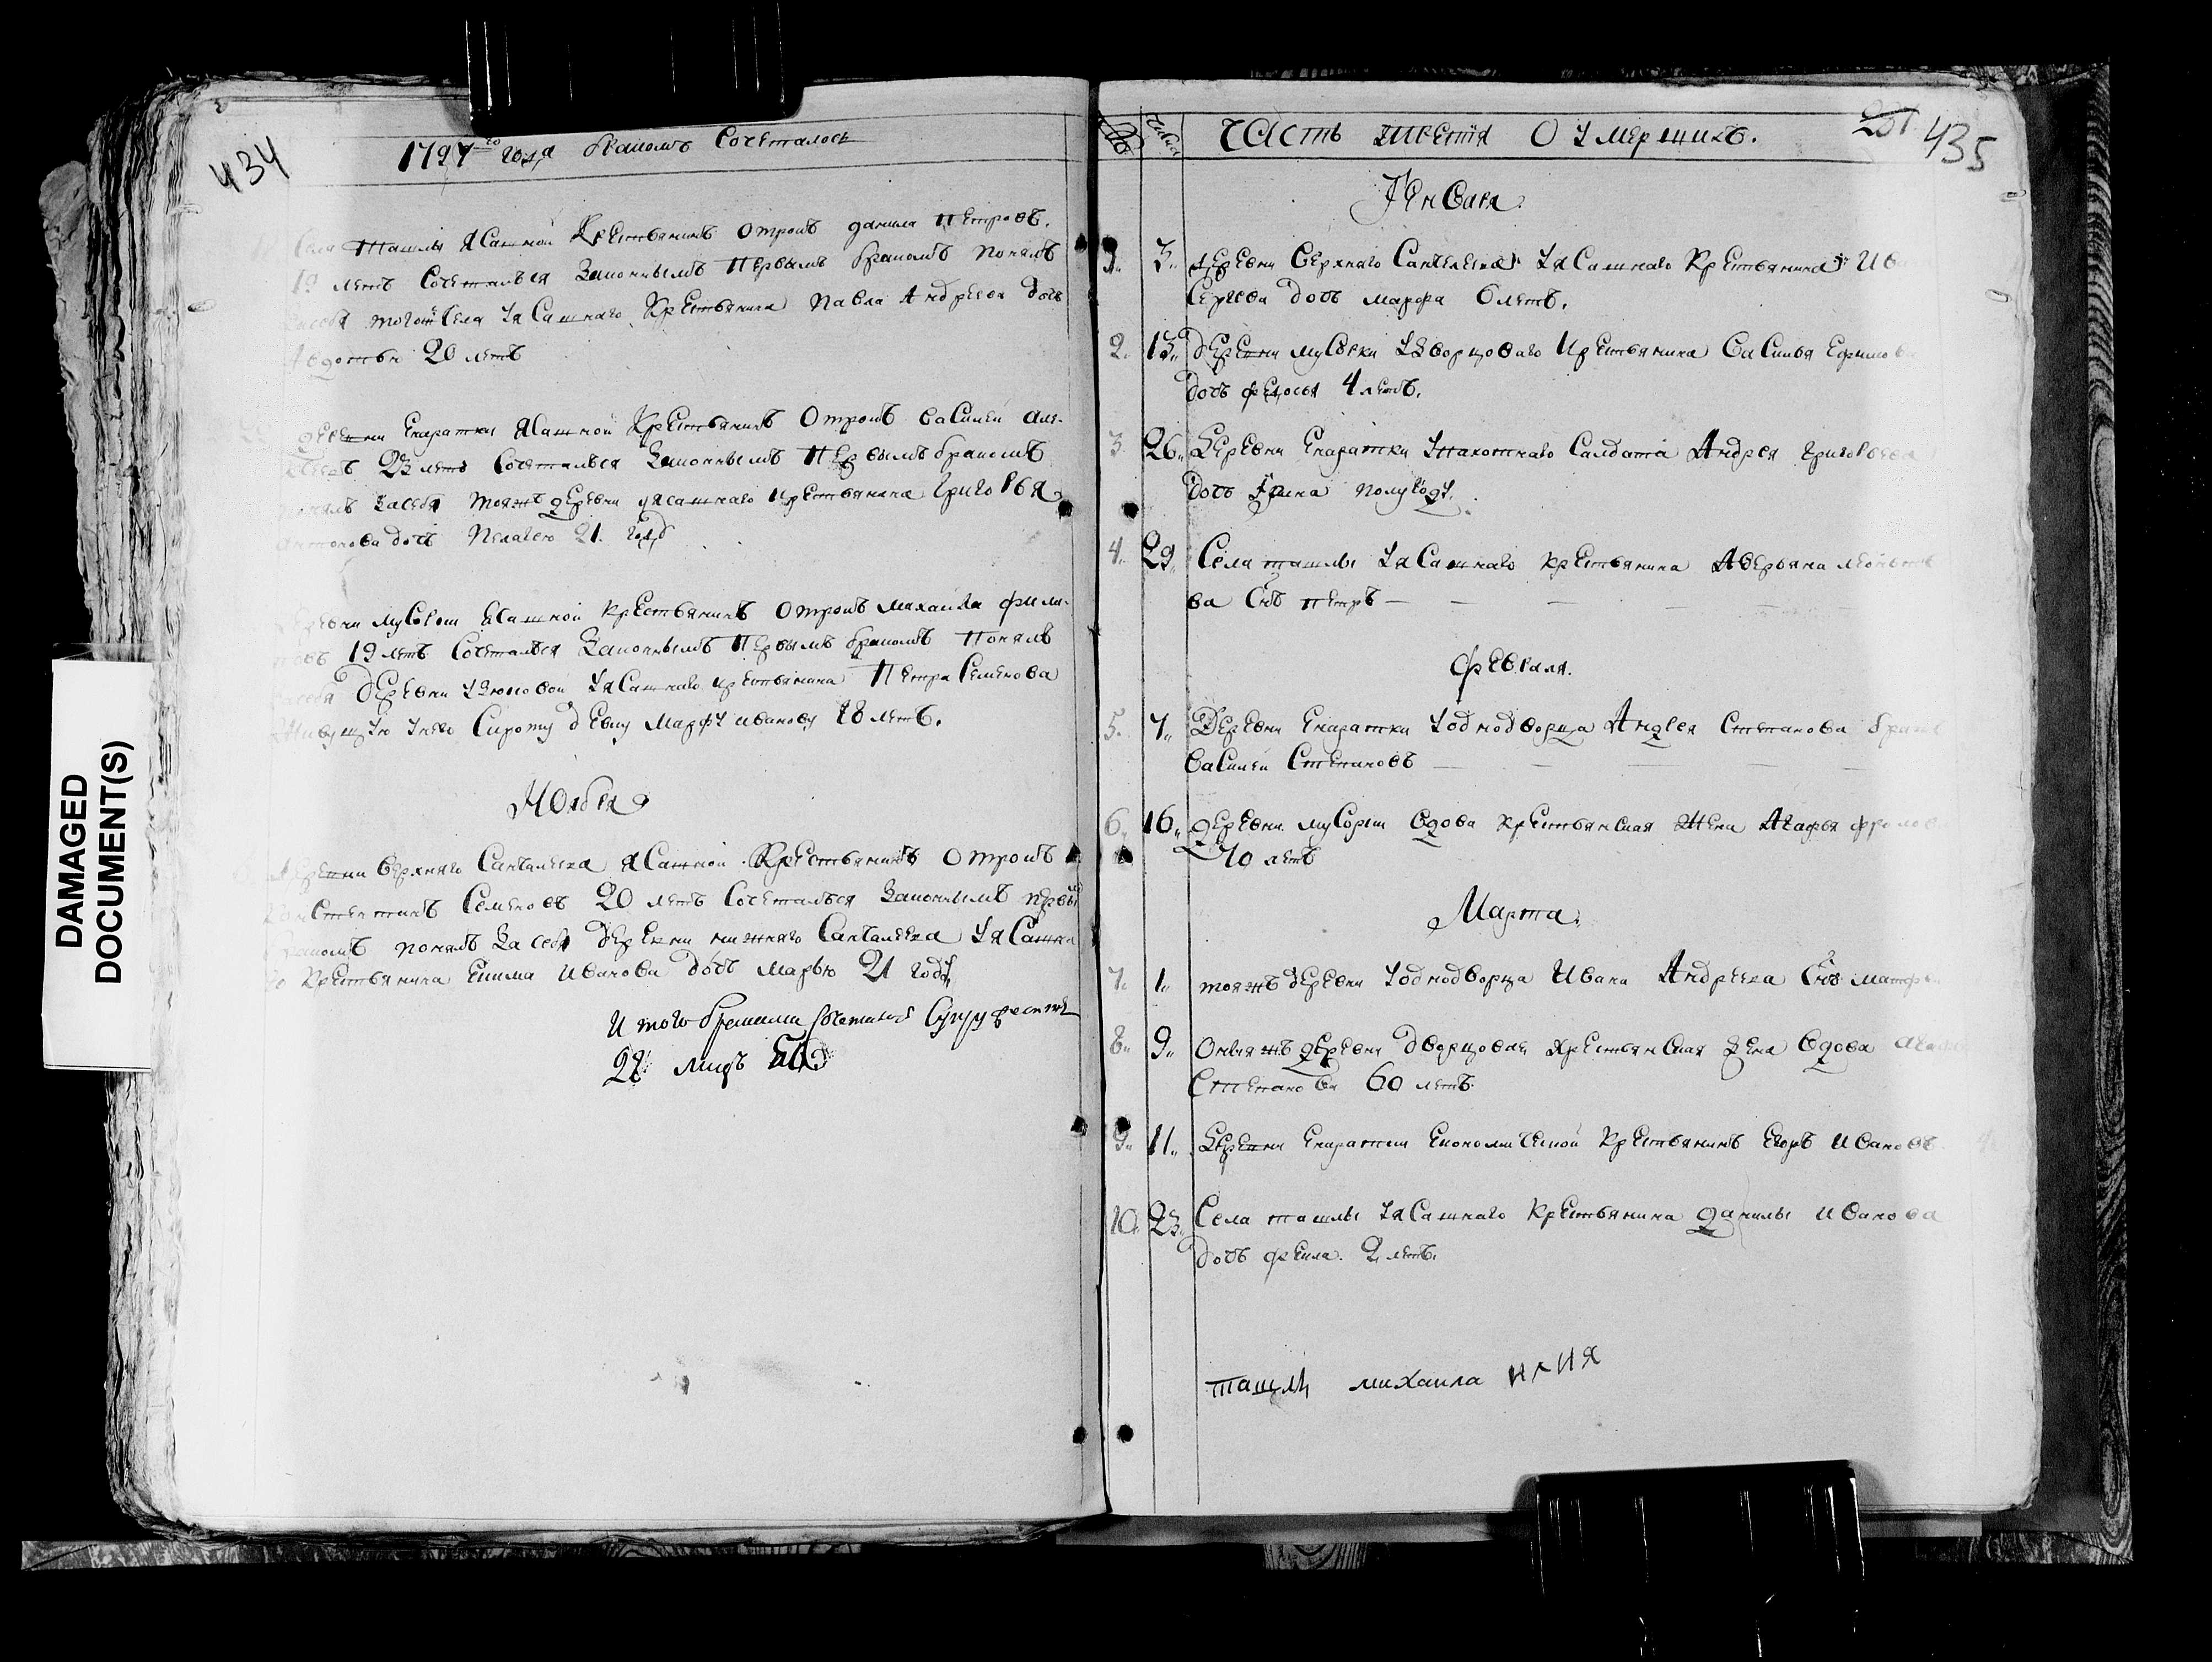 DAMAGED
DOCUMENT(S)
434
1797го года бракомъ Сочеталось
Села Ташлы ясашной Крестьянинъ Отрокъ данила Петровъ.
19 летъ Сочетался Законнымъ Первымъ бракомъ понялъ
засебя тогожъ Села уясашнаго Крестьянина Павла Андреева дочь
Авдотью 20 летъ
деревни Екаратки ясашной Крестьянинъ Отрокъ василеи але-
23 летъ Сочетался Законнымъ Первымъ бракомъ
понялъ засебя тояжъ деревни уясашнаго крестьянина Григорья
антонова дочь Пелагею 21. году
деревни Мусорки ясашной крестьянинъ отрокъ михаила фили-
повъ 19 летъ Сочетался Законнымъ Первымъ бракомъ Понялъ
засебя деревни уясашнаго крестьянина Петра Семенова
Живущую унего Сироту девку Марфу иванову 18 летъ.
Ноября
деревни верхняго Санчелеева ясашной Крестьянинъ Отрокъ
Константинъ Семеновъ 20 летъ Сочетался Законнымъ первым
бракомъ понялъ За себя деревни нижняго Санчелеева уясашна
го Крестьянина Екима иванова дочь марью 21 году
и того браками Сочетались Супружествъ
22
№ Числа Часть третiя О умершихъ. 201 435
Генваря.
1. 3. деревни верхняго Санчелеева уясашнаго Крестьянина Ива
Сергеева дочь марфа 6 летъ.
2. 13. деревни мусорки удворцоваго крестьянина василья Ефимов
дочь федосья 4 летъ.
3 26. деревни Екаратки упахотнаго Салдата Андрея григорьева
дочь Iрина полугоду.
4. 29. Села ташлы уясашнаго крестьянина Аверьяна леонтье
ва Снъ петръ —
Февраля.
5. 7. Деревни Екаратки уоднодворца Андрея Степанова братъ
василеи Степановъ —
6. 16. деревни мусорки вдова крестьянская жена Агафья фролов
70 летъ
Марта.
7. 1. тояжъ деревни уоднодворца Ивана Андреева Снъ матфе
8. 9. Оныяжъ деревни дворцовая крестьянская жена вдова
Степанова 60 летъ.
9. 11. деревни Екаратки Економической крестьянинъ Егоръ ивановъ.
10. 23. Села ташлы уясашнаго крестьянина данилы иванова
дочь фекла. 2 летъ.
ташлы михаила